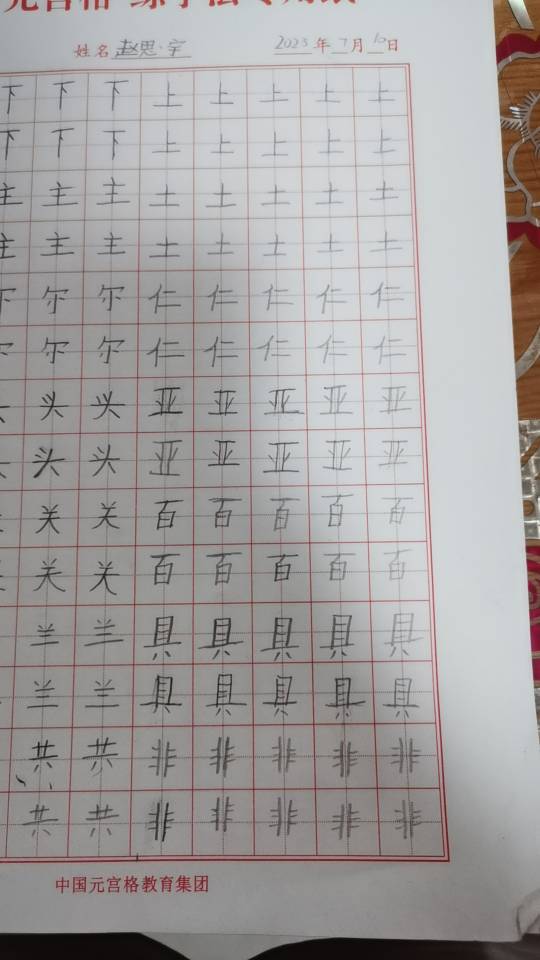 元宫格
姓名 赵思宇 2023年7月10日
下下下上上上上上
下下下上上上上上
主主主土土土土土
主主主土土土土土
尔尔尔仁仁仁仁仁
尔尔尔仁仁仁仁仁
头头亚亚亚亚亚
头头亚亚亚亚亚
关关百百百百百
关关百百百百百
兰兰具具具具具
兰兰具具具具具
共共非非非非非
共共非非非非非
中国元宫格教育集团